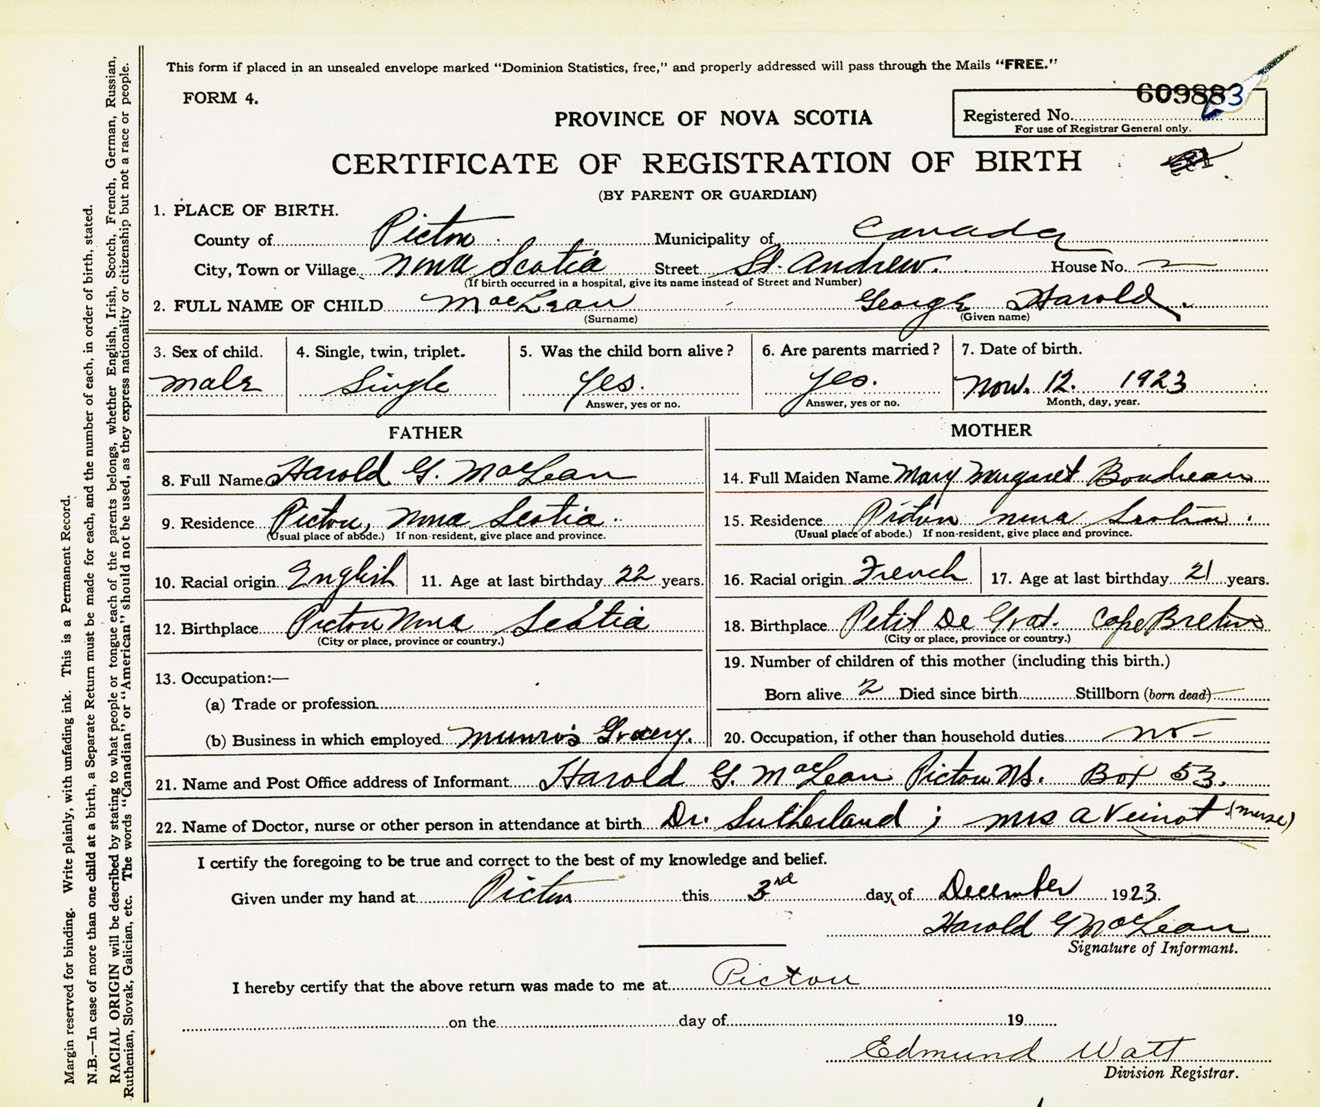 This form if placed in an unsealed envelope marked "Dominion Statistics, free," and properly addressed will pass through the Mails "FREE."
FORM 4.
609883
PROVINCE OF NOVA SCOTIA
Registered No.
For use of Registrar General only.
CERTIFICATE OF REGISTRATION OF BIRTH
(BY PARENT OR GUARDIAN)
1. PLACE OF BIRTH.
County of Pictou Municipality of Canada
City, Town or Village Nova Scotia Street St. Andrew. House No. —
(If birth occurred in a hospital, give its name instead of Street and Number)
2. FULL NAME OF CHILD MacLean George Harold.
(Surname) (Given name)
3. Sex of child. 4. Single, twin, triplet. 5. Was the child born alive? 6. Are parents married? 7. Date of birth.
male Single yes. yes. Nov. 12. 1923
Answer, yes or no. Answer, yes or no. Month, day, year.
FATHER MOTHER
8. Full Name Harold G. MacLean 14. Full Maiden Name Mary Margaret Boudreau
9. Residence Pictou, Nova Scotia. 15. Residence Pictou Nova Scotia.
(Usual place of abode.) If non-resident, give place and province. (Usual place of abode.) If non-resident, give place and province.
10. Racial origin English 11. Age at last birthday 22 years. 16. Racial origin French 17. Age at last birthday 21 years.
12. Birthplace Pictou Nova Scotia 18. Birthplace Petit De Grat. Cape Breton
(City or place, province or country.) (City or place, province or country.)
13. Occupation:— 19. Number of children of this mother (including this birth.)
(a) Trade or profession Born alive 2 Died since birth Stillborn (born dead) —
(b) Business in which employed Munro's Grocery. 20. Occupation, if other than household duties no —
21. Name and Post Office address of Informant Harold G. MacLean Pictou NS. Box 53.
22. Name of Doctor, nurse or other person in attendance at birth Dr. Sutherland ; Mrs A Veinot (nurse)
I certify the foregoing to be true and correct to the best of my knowledge and belief.
Given under my hand at Pictou this 3rd day of December 1923.
Harold G MacLean
Signature of Informant.
I hereby certify that the above return was made to me at Pictou
on the day of 19
Edmund Watt
Division Registrar.
Margin reserved for binding. Write plainly, with unfading ink. This is a Permanent Record.
N.B.—In case of more than one child at a birth, a Separate Return must be made for each, and the number of each, in order of birth, stated.
RACIAL ORIGIN will be described by stating to what people or tongue each of the parents belongs, whether English, Irish, Scotch, French, German, Russian,
Ruthenian, Slovak, Galician, etc. The words "Canadian" or "American" should not be used, as they express nationality or citizenship but not a race or people.